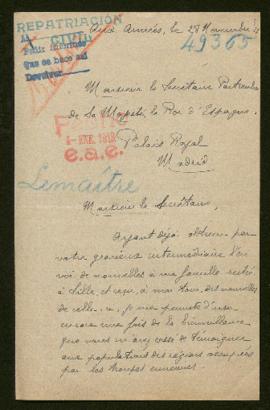 REPATRIACIÓN
Aux Armées, le 28 Novembre
49365
Monsieur le Secrétaire Particulier
de Sa Majesté le Roi d'Espagne
Palais Royal
Madrid
e.a.e.
Lemaître
Monsieur le Secrétaire,
Ayant déjà obtenu par
votre gracieux intermédiaire l'en-
voi de nouvelles à ma famille restée
à Lille, et reçu, à mon tour, des nouvelles
de celle-ci, je me permets d'user
encore une fois de la bienveillance
que vous n'avez cessé de témoigner
aux populations des régions occupées
par les troupes ennemies.